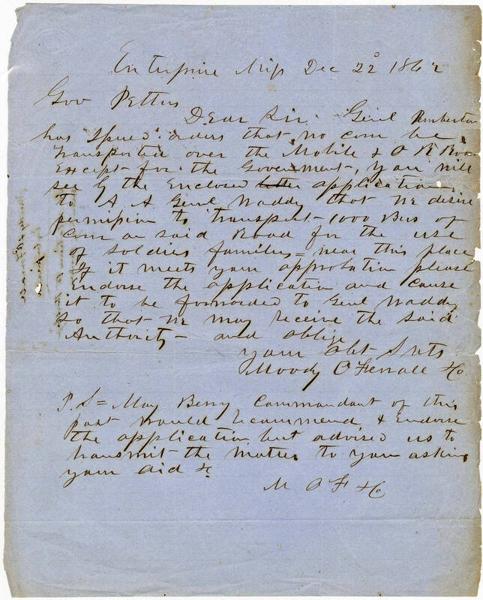 Enterprise Miss Dec 22d 1862
Gov Pettus
Dear Sir. Genl Pemberton
has issued orders that no corn be
Transported over the Mobile & O R Road
Except for the Government, you will
see by the Enclosed application
to A A Genl Waddy that we desire
permission to transport 1000 Bus of
Corn on said Road for the use
of Soldiers families = near this place
If it meets your approbation please
Endorse the application and cause
it to be forwarded to Genl Waddy
so that we may receive the said
Authority - and oblige
your Obt Svts
Moody O'Ferrall & Co
P.S = Maj Berry Commandant of this
post would recommend, & Endorse
the application, but advised us to
transmit the matter to you asking
your aid &c
M O F & Co